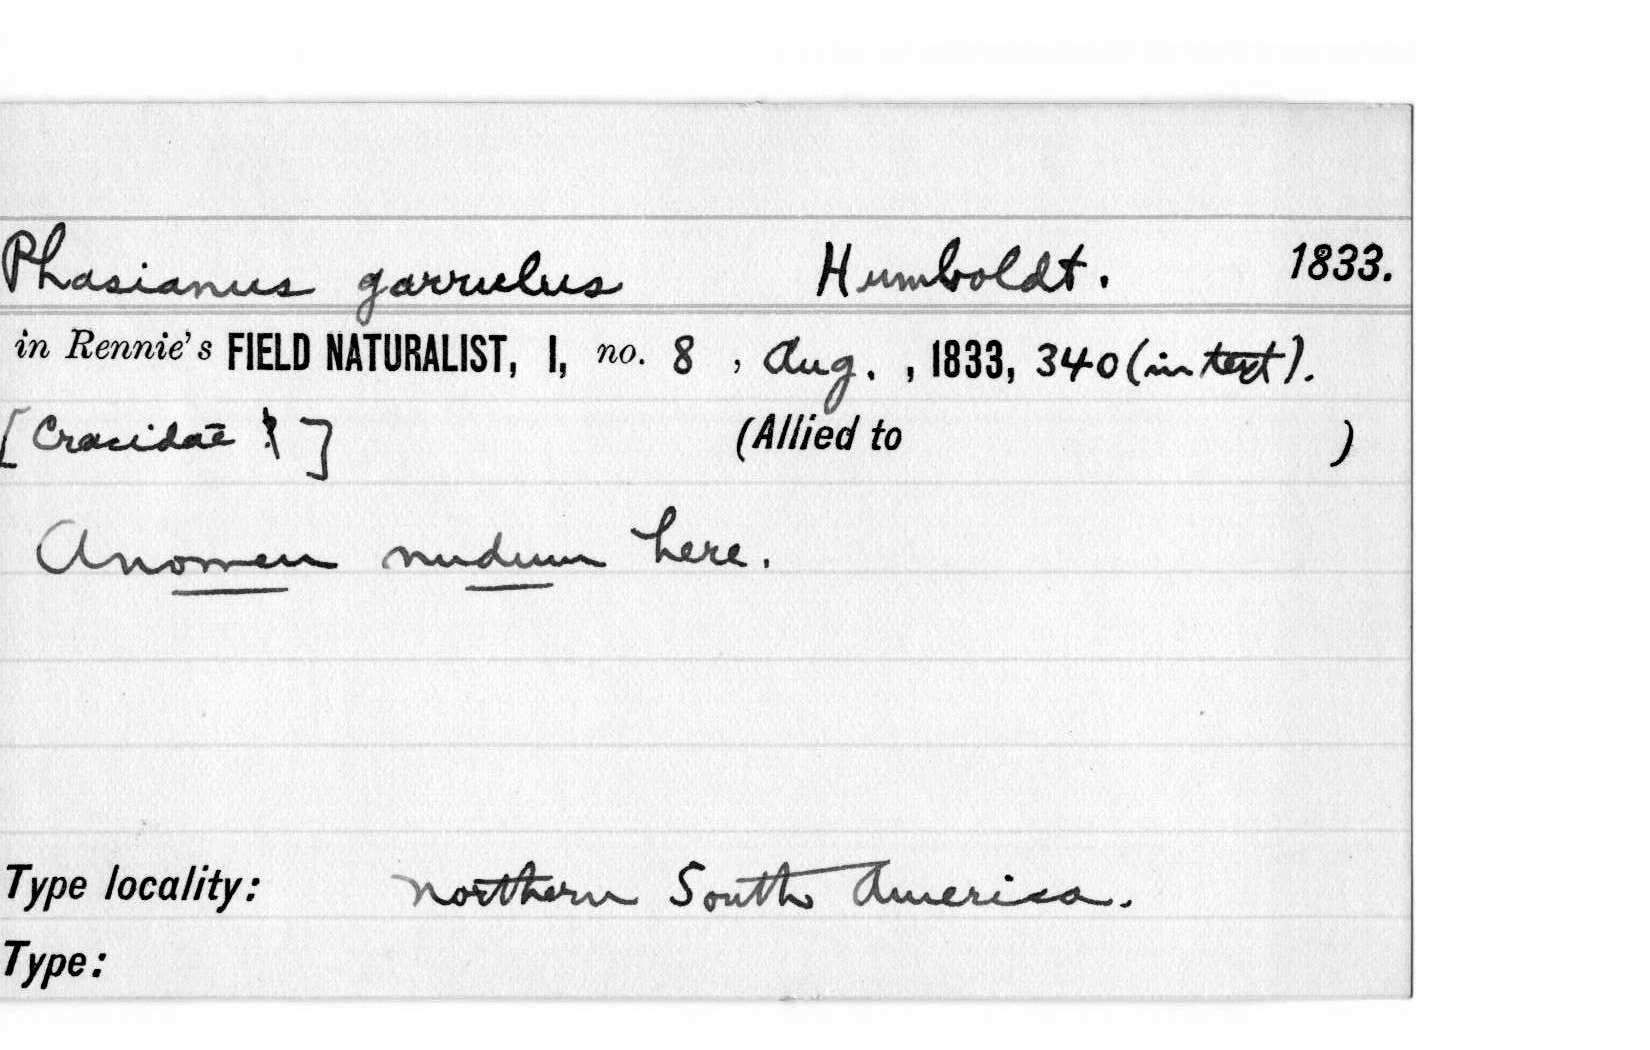 Phasianus garrulus Humboldt. 1833.
in Rennie's FIELD NATURALIST, I, no. 8 , Aug. , 1833, 340 (in text).
[Cracidae ?] (Allied to )
A nomen nudum here.
Type locality: Northern South America.
Type: